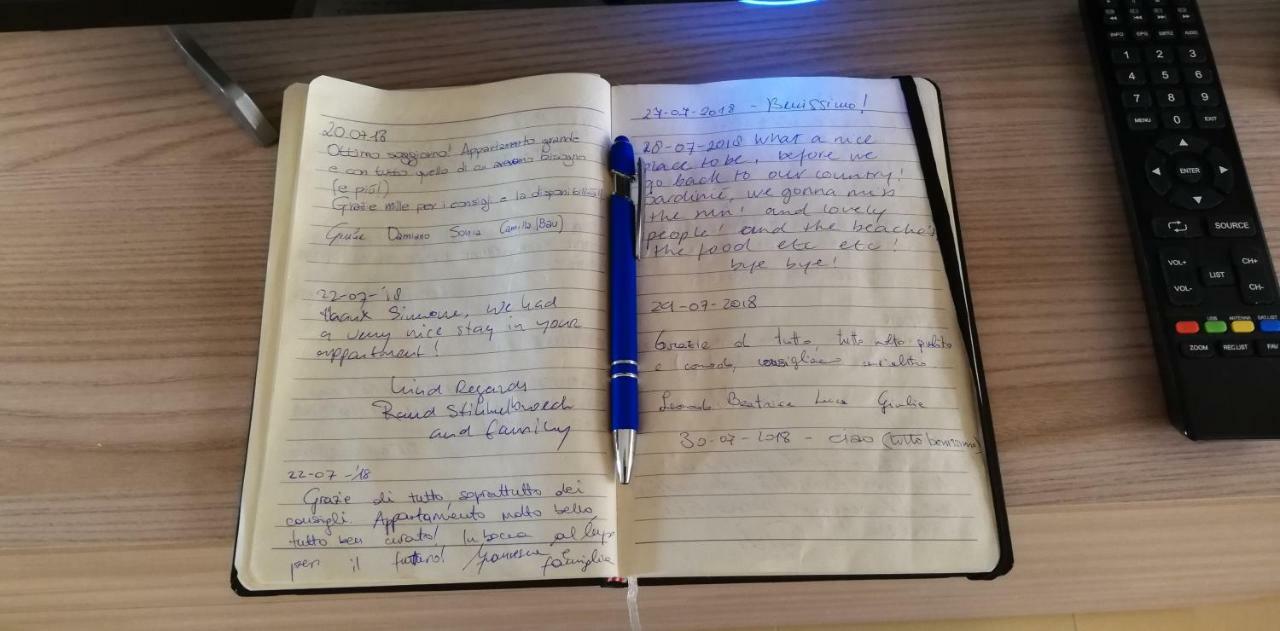 20.07.18
Ottimo soggiorno! Appartamento grande
e con tutto quello di cui avevamo bisogno
(e più!)
Grazie mille per i consigli e la disponibilità!!
Grazie Damiano Sonia Camilla
22-07-'18
Thank Simone, we had
a very nice stay in your
appartment!
Kind Regards
and family
22-07-'18
Grazie di tutto, soprattutto dei
consigli. Appartamento molto bello,
tutto ben curato! In bocca al lupo
per il futuro! Francesca famiglia
27-07-2018 - Benissimo!
28-07-2018 What a nice
place to be, before we
go back to our country!
Sardinië, we gonna miss
the sun! and lovely
people! and the beache's
the food etc etc!
bye bye!
29-07-2018
Grazie di tutto, tutto molto pulito
e comodo,
Leonardo Beatrice Luca Giulia
30-07-2018 - ciao (tutto benissimo)
INFO EPG SUBTITLE AUDIO
1 2 3
4 5 6
7 8 9
MENU 0 EXIT
ENTER
SOURCE
VOL+ CH+
LIST
VOL- CH-
USB ANTENNA SAT.LIST
ZOOM REC LIST FAV